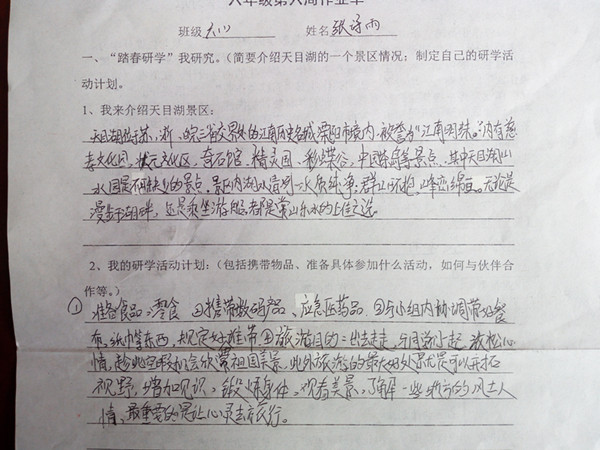 六年级第六周作业单
班级 六(1) 姓名 张诗雨
一、“踏春研学”我研究。（简要介绍天目湖的一个景区情况；制定自己的研学活
动计划。
1、我来介绍天目湖景区：
天目湖位于苏、浙、皖三省交界处的江南历史名城溧阳市境内，被誉为“江南明珠。”内有慈
孝文化园、状元文化区、奇石馆、精灵国、彩蝶谷、中国茶岛等景点，其中天目湖山
水园是不可缺少的景点，景区内湖水清冽、水质纯净，群山环抱，峰峦绵亘。无论是
漫步于湖畔，还是乘坐游船，都是赏山乐水的上佳之选。
2、我的研学活动计划：（包括携带物品、准备具体参加什么活动，如何与伙伴合
作等。）
①准备食品：零食 ②携带数码产品、应急医药品 ③与小组内协调带好餐
布、纸巾等东西，规定好谁带 ④旅游目的：出去走走，与同学们一起，放松心
情，趁此宝贵机会欣赏祖国美景，此外旅游的最大好处无疑是可以开拓
视野，增加见识，锻炼身体，观看美景，了解一些地方的风土人
情，最重要的是让心灵去旅行。